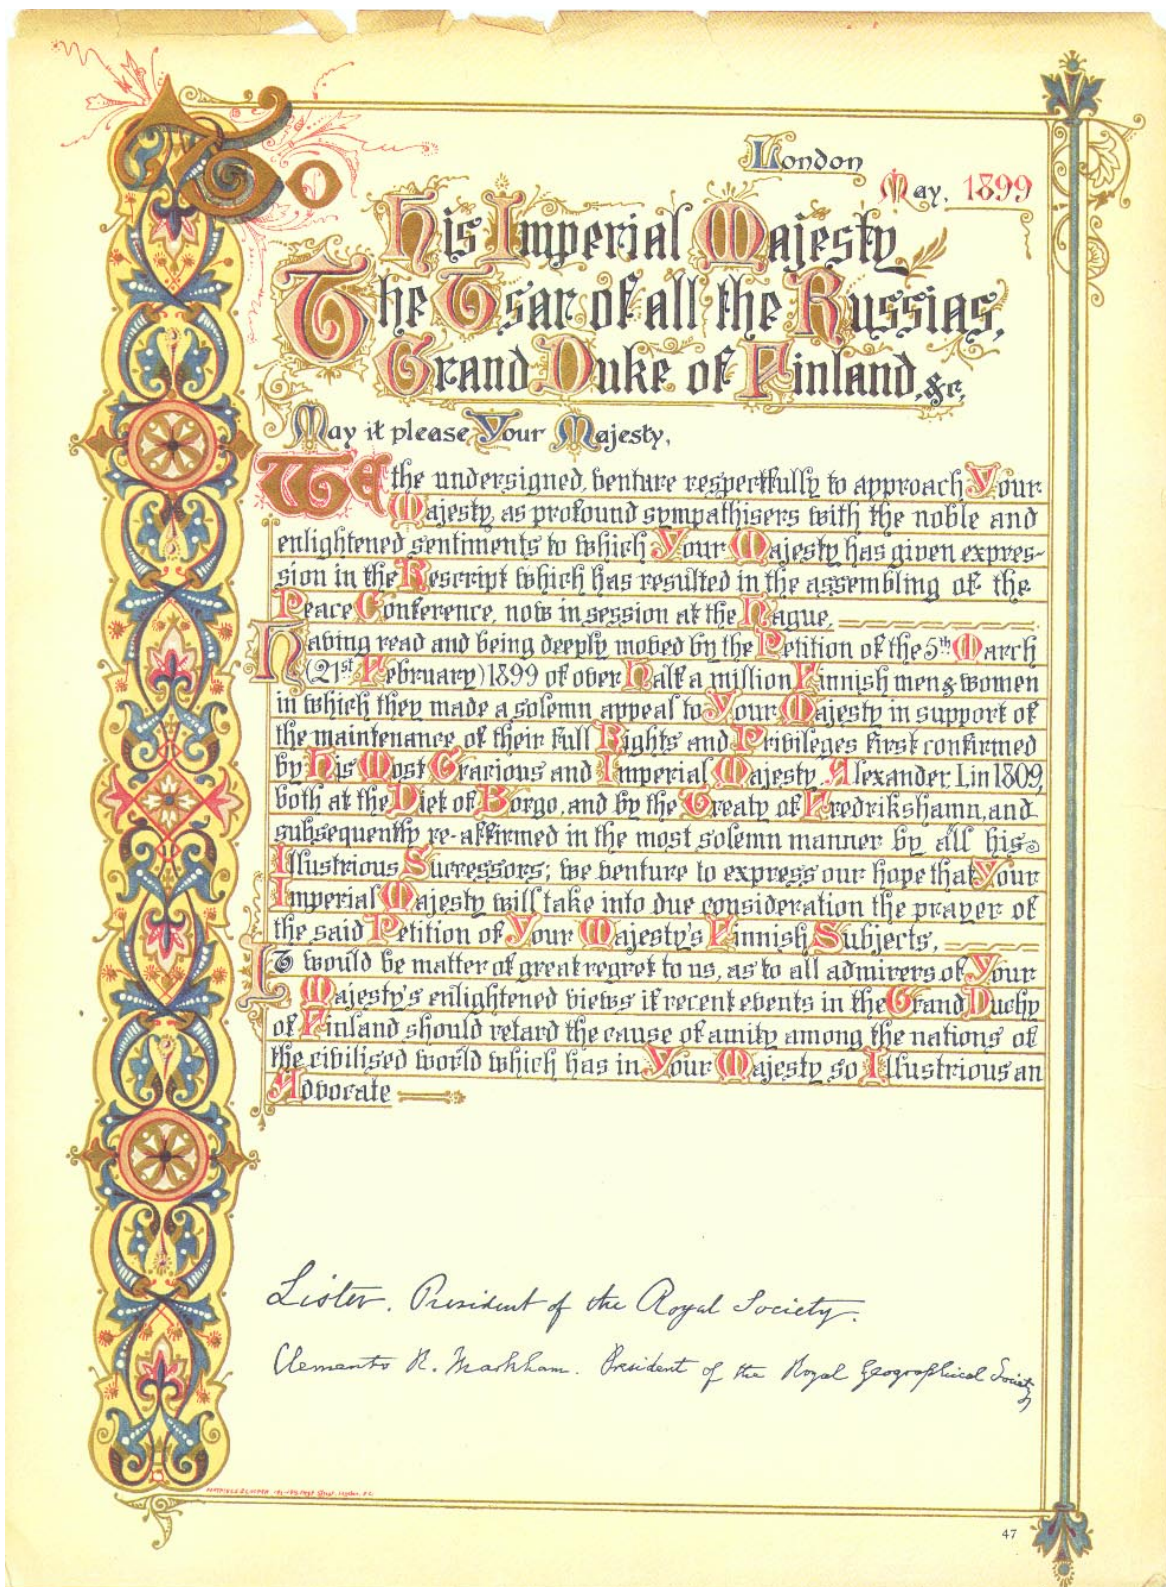 To
London
May, 1899
His Imperial Majesty
The Tsar of all the Russias,
Grand Duke of Finland, &c,
May it please Your Majesty,
WE the undersigned, venture respectfully to approach Your
Majesty, as profound sympathisers with the noble and
enlightened sentiments to which Your Majesty has given expres-
sion in the Rescript which has resulted in the assembling of the
Peace Conference, now in session at the Hague,
Having read and being deeply moved by the Petition of the 5th March
(21st February) 1899 of over Half a million Finnish men & women
in which they made a solemn appeal to Your Majesty in support of
the maintenance of their full Rights and Privileges first confirmed
by His Most Gracious and Imperial Majesty Alexander I, in 1809,
both at the Diet of Borgo, and by the Treaty of Fredrikshamn, and
subsequently re-affirmed in the most solemn manner by all his
Illustrious Successors; we venture to express our hope that Your
Imperial Majesty will take into due consideration the prayer of
the said Petition of Your Majesty's Finnish Subjects,
It would be matter of great regret to us, as to all admirers of Your
Majesty's enlightened views if recent events in the Grand Duchy
of Finland should retard the cause of amity among the nations of
the civilised world which has in Your Majesty so Illustrious an
Advocate
Lister. President of the Royal Society.
Clements R. Markham. President of the Royal Geographical Society
47